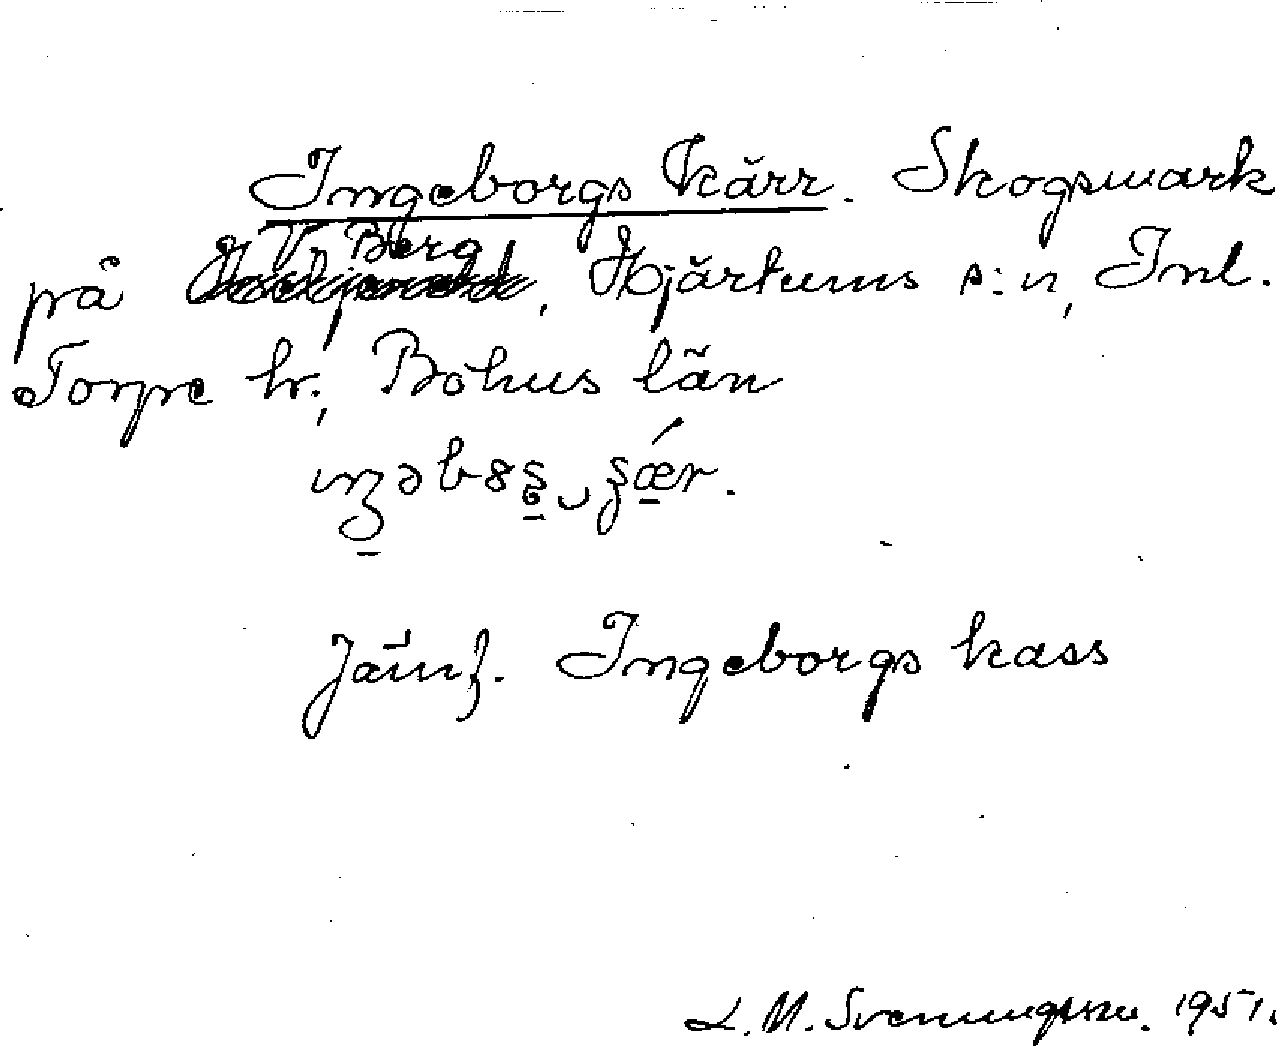 Ingeborgs kärr. Skogsmark
V. Berg
på, Hjärtums s:n, Inl.
Torpe hr., Bohus län
Jämf. Ingeborgs kass
L. M. Svenungsson. 1951.